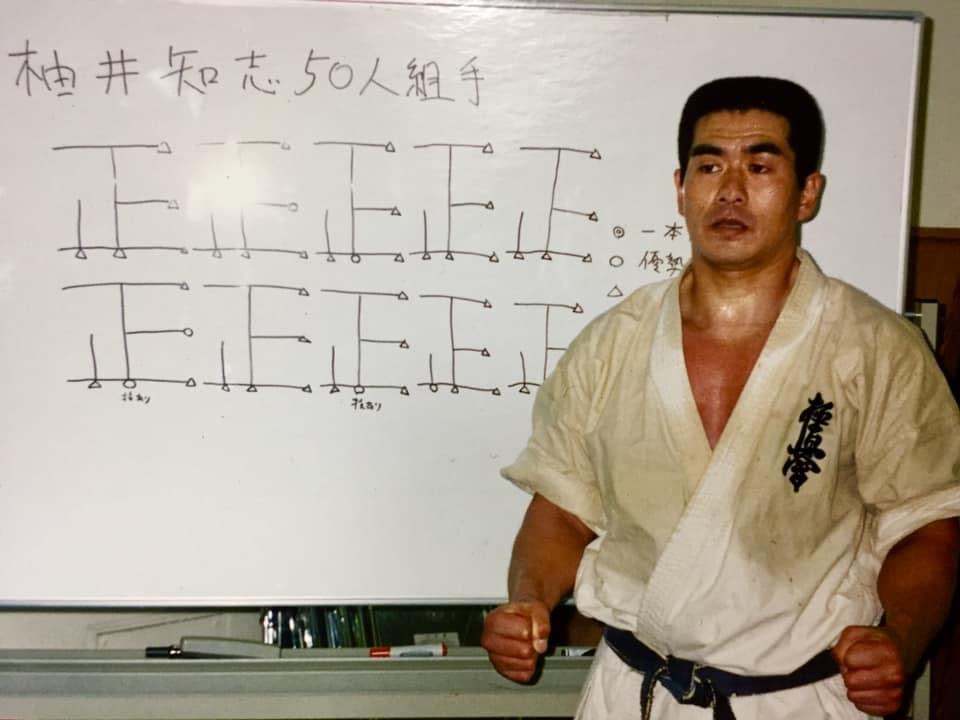 柚井知志50人組手
正正正正正
◎ 一本
○ 優勢
△
正正正正正
技あり 技あり
極真会